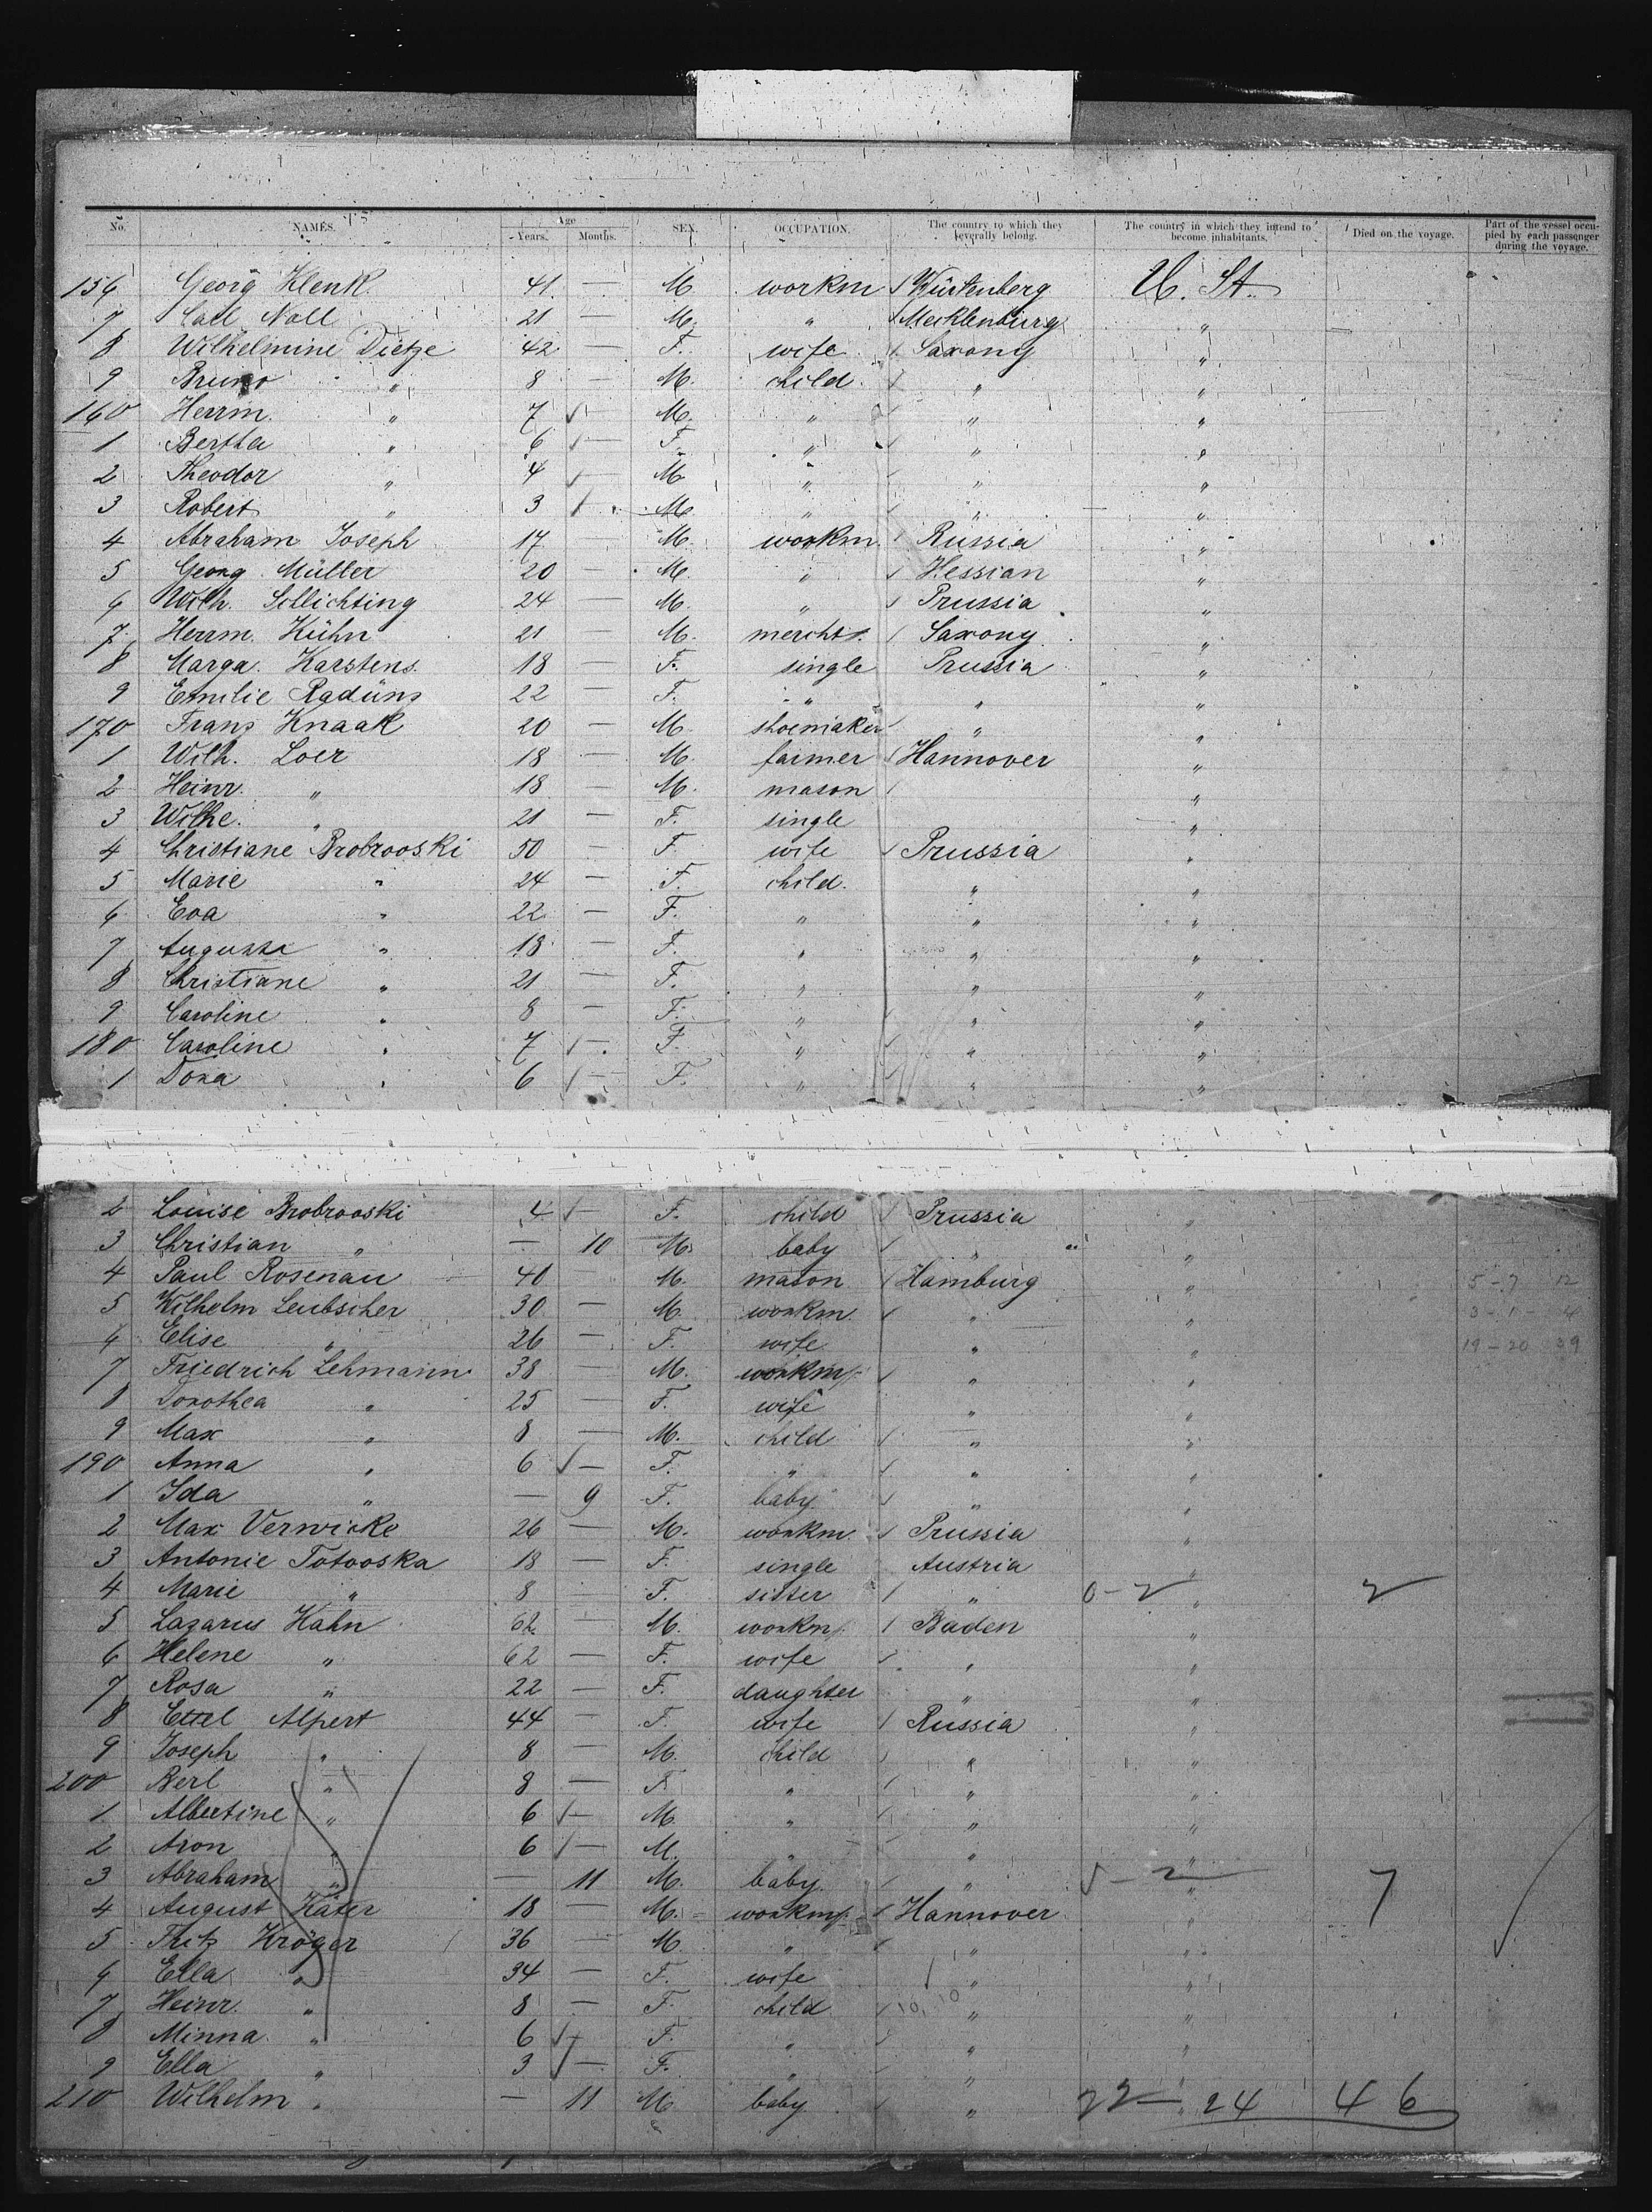 No. NAMES. Age Years. Months. SEX. OCCUPATION. The country to which they severally belong. The country in which they intend to become inhabitants. Died on the voyage. Part of the vessel occupied by each passenger during the voyage.
156 Georg Klenk 41 — M workm Würtenberg U. St.
7 Carl Noll 21 — M. " Mecklenburg "
8 Wilhelmine Dietze 42 — F. wife Saxony "
9 Bruno " 8 — M. child " "
160 Herrm. " 7 — M. " " "
1 Bertha " 6 — F. " " "
2 Theodor " 4 — M " " "
3 Robert " 3 M " " "
4 Abraham Joseph 17 M. workm. Russia "
5 Georg Müller 20 — M. " Hessian "
6 Wilh. Schlichting 24 — M. " Prussia "
7 Herrm. Kühn 21 — M. mercht. Saxony "
8 Marga. Karstens 18 — F. single Prussia "
9 Emilie Radünz 22 — F. " " "
170 Franz Knaak 20 — M shoemaker " "
1 Wilh. Loer 18 — M. farmer Hannover "
2 Heinr. " 18 — M. mason "
3 Wilhe. " 21 — F. single "
4 Christiane Brobrooski 50 — F wife Prussia "
5 Marie " 24 — F. child. " "
6 Eva " 22 — F. " " "
7 Augusta " 18 — F. " " "
8 Christiane " 21 — F. " " "
9 Caroline " 8 — F. " " "
180 Caroline " 7 — F. " " "
1 Dora " 6 — F. " " "
2 Louise Brobrooski 4 — F. child Prussia "
3 Christian " — 10 M. baby " "
4 Paul Rosenau 40 M. mason Hamburg " 5 - 7 12
5 Wilhelm Leubscher 30 — M. workm. " " 3 - 1 - 4
6 Elise " 26 — F. wife " " 19 - 20 39
7 Friedrich Lehmann 38 — M. workm. " "
8 Dorothea " 25 — F. wife " "
9 Max " 8 — M. child " "
190 Anna " 6 — F. " " "
1 Ida " — 9 F. baby " "
2 Max Verwicke 26 — M. workm. Prussia "
3 Antonie Totooska 18 — F. single Austria "
4 Marie " 8 — F. sister " 0 - 2 " 2
5 Lazarus Kahn 62 M. workm. Baden "
6 Helene " 62 — F. wife " "
7 Rosa " 22 — F. daughter " "
8 Ettel Alpert 44 — F. wife Russia "
9 Joseph " 8 — M. child " "
200 Berl " 8 — F. " " "
1 Albertine " 6 — M. " " "
2 Aron " 6 — M. " " "
3 Abraham " — 11 M. baby " 5 - 2 " 7
4 August Käter 18 — M. workm. Hannover "
5 Fritz Kröger 36 — M. " " "
6 Ella " 34 — F. wife " "
7 Heinr. " 8 — F. child 10, 10 " "
8 Minna " 6 — F. " " "
9 Ella " 3 — F. " " "
210 Wilhelm " — 11 M baby " 22 - 24 46